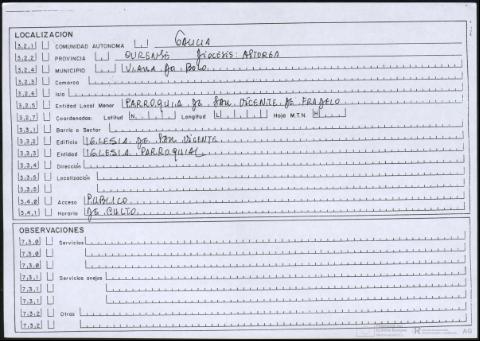 LOCALIZACION
3.2.1 COMUNIDAD AUTONOMA GALICIA
3.2.2 PROVINCIA OURENSE DIOCESIS: ASTORGA
3.2.4 MUNICIPIO VIANA DO BOLO
3.2.3 Comarca
3.2.6 Isla
3.2.5 Entidad Local Menor PARROQUIA DE SAN VICENTE DE FRADELO
3.2.7 Coordenadas: Latitud N Longitud L Hoja M.T.N. H
3.3.1 Barrio o Sector
3.3.2 Edificio IGLESIA DE SAN VICENTE
3.3.3 Entidad IGLESIA PARROQUIAL
3.3.4 Dirección
3.3.5 Localización
3.3.5
3.4.0 Acceso PUBLICO
3.4.1 Horario DE CULTO
OBSERVACIONES
7.3.0 Servicios
7.3.0
7.3.0
7.3.1 Servicios anejos
7.3.1
7.3.1
7.3.2 Otros
7.3.2